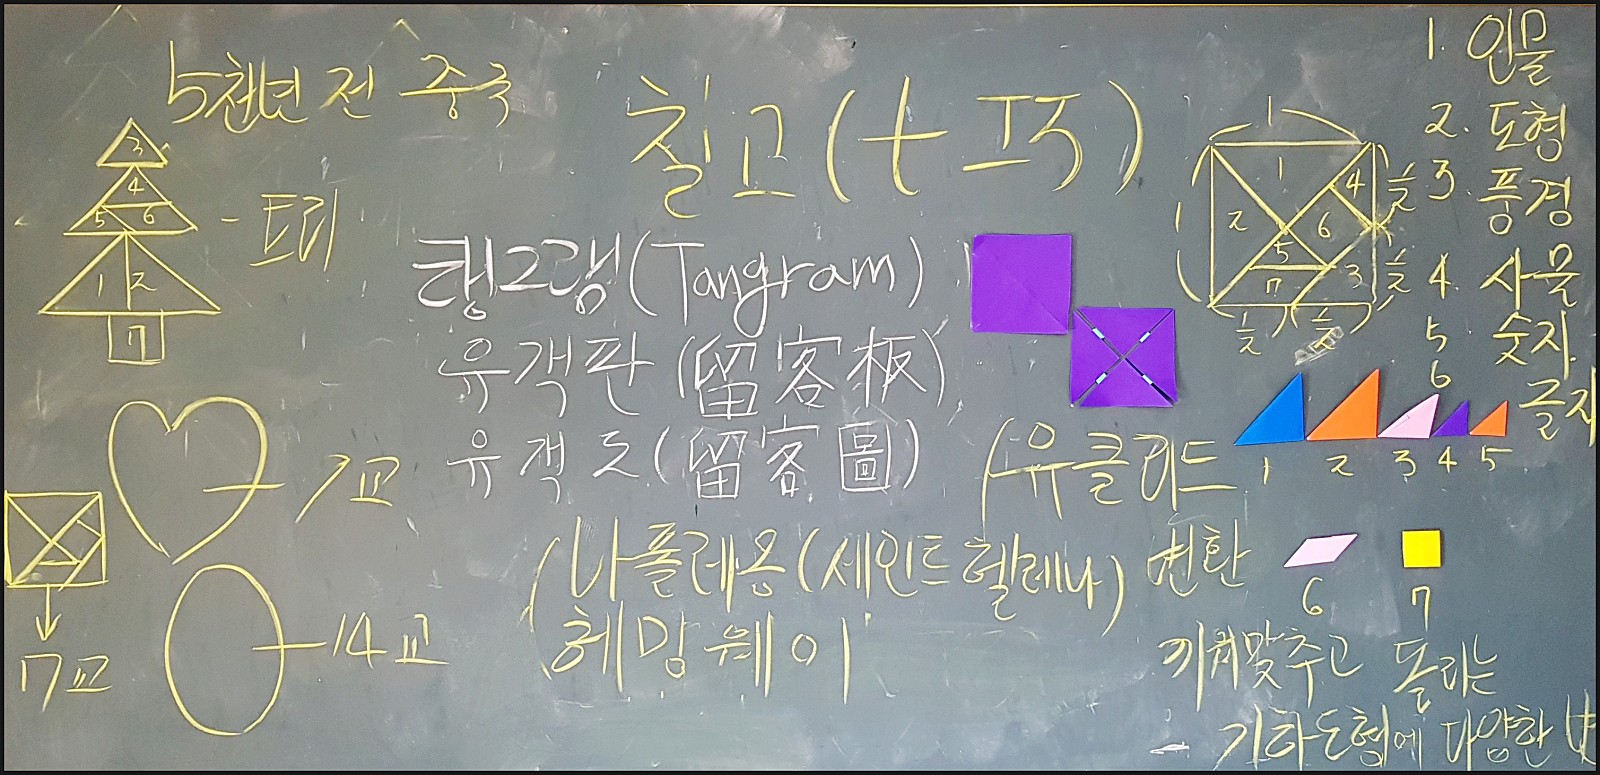 5천년 전 중국
칠교(七巧)
탱그램(Tangram)
유객판(留客板)
유객도(留客圖)
(유클리드
(나폴레옹(세인트헬레나)
헤밍웨이
변환
끼워맞추고 돌리는
기하도형에 다양한
트리
3
4
5 6
1 2
7
7교
14교
17교
1
1 2 3 4 5 6 7
1/2 1/2
1/2 1/2
1. 인물
2. 도형
3. 풍경
4. 사물
5 숫자
6 글자
1 2 3 4 5
6 7